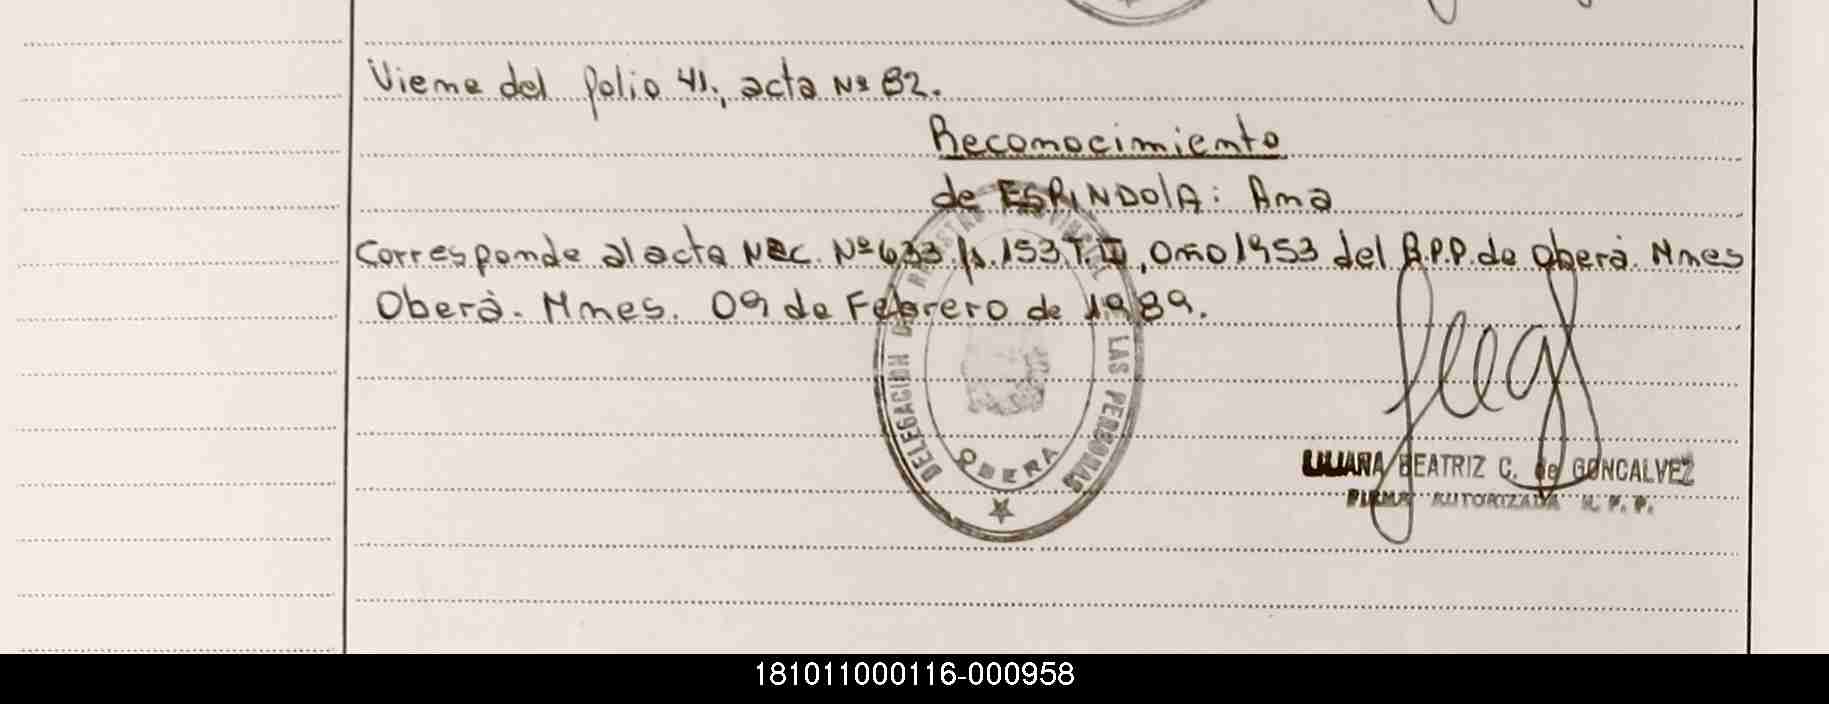 Viene del folio 41, acta Nº 82.
Reconocimiento
de ESPINDOlA: Ana
Corresponde al acta Nac. Nº 633. fs. 153. T. II, Año 1953 del R.P.P. de Oberá. Mnes
Oberá. Mnes. 09 de Febrero de 1989.
DELEGACION DEL REGISTRO PROVINCIAL DE LAS PERSONAS
OBERA
LILIANA BEATRIZ C. de GONCALVEZ
FIRMA AUTORIZADA R. P. P.
181011000116-000958